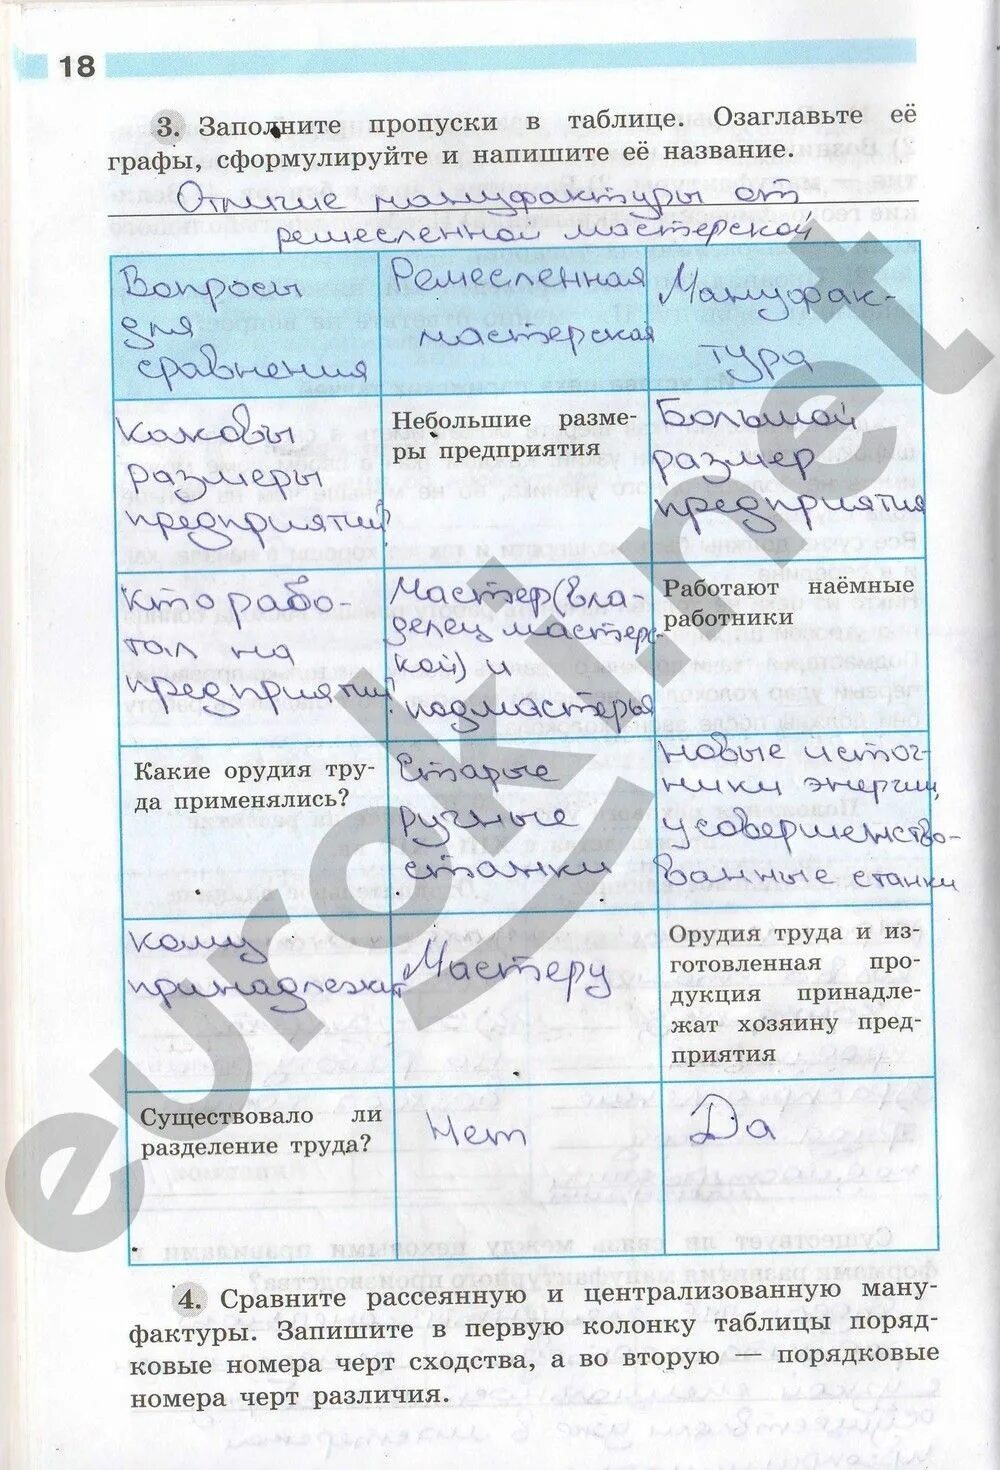 18
3. Заполните пропуски в таблице. Озаглавьте её
графы, сформулируйте и напишите её название.
Отличие мануфактуры от
ремесленной мастерской
Вопросы
для
сравнения
Ремесленная
мастерская
Мануфак-
тура
Каковы
размеры
предприятий?
Небольшие разме-
ры предприятия
Большой
размер
предприятия
Кто рабо-
тал на
предприятии?
Мастер (вла-
делец мастерс-
кой) и
подмастерья
Работают наёмные
работники
Какие орудия тру-
да применялись?
Старые
ручные
станки
Новые источ-
ники энергии,
усовершенство-
ванные станки
кому
принадлежит
Мастеру
Орудия труда и из-
готовленная про-
дукция принадле-
жат хозяину пред-
приятия
Существовало ли
разделение труда?
Нет
Да
4. Сравните рассеянную и централизованную ману-
фактуры. Запишите в первую колонку таблицы поряд-
ковые номера черт сходства, а во вторую — порядковые
номера черт различия.
euroki.net